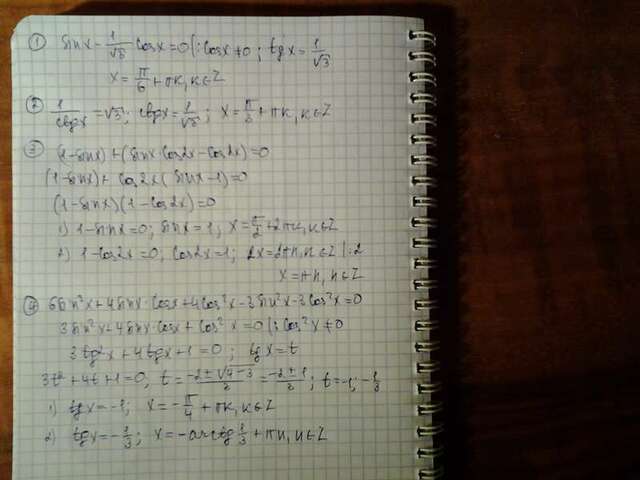 ① sinx - 1/√3 cosx = 0 |: cosx ≠ 0 ; tgx = 1/√3
x = π/6 + πk, k∈Z
② 1/ctgx = √3 ; ctgx = 1/√3 ; x = π/3 + πk, k∈Z
③ (1-sinx) + (sinx·cos2x - cos2x) = 0
(1-sinx) + cos2x (sinx - 1) = 0
(1-sinx)(1-cos2x) = 0
1) 1-sinx = 0 ; sinx = 1 , x = π/2 + 2πk, k∈Z
2) 1-cos2x = 0 ; cos2x = 1 ; 2x = 2πn, n∈Z |:2
x = πn, n∈Z
④ 6sin²x + 4sinx·cosx + 4cos²x - 3sin²x - 3cos²x = 0
3sin²x + 4sinx·cosx + cos²x = 0 |: cos²x ≠ 0
3tg²x + 4tgx + 1 = 0 ; tgx = t
3t² + 4t + 1 = 0, t = (-2±√4-3)/3 = (-2±1)/3 ; t = -1; -1/3
1) tgx = -1 ; x = -π/4 + πk, k∈Z
2) tgx = -1/3 ; x = -arctg 1/3 + πn, n∈Z